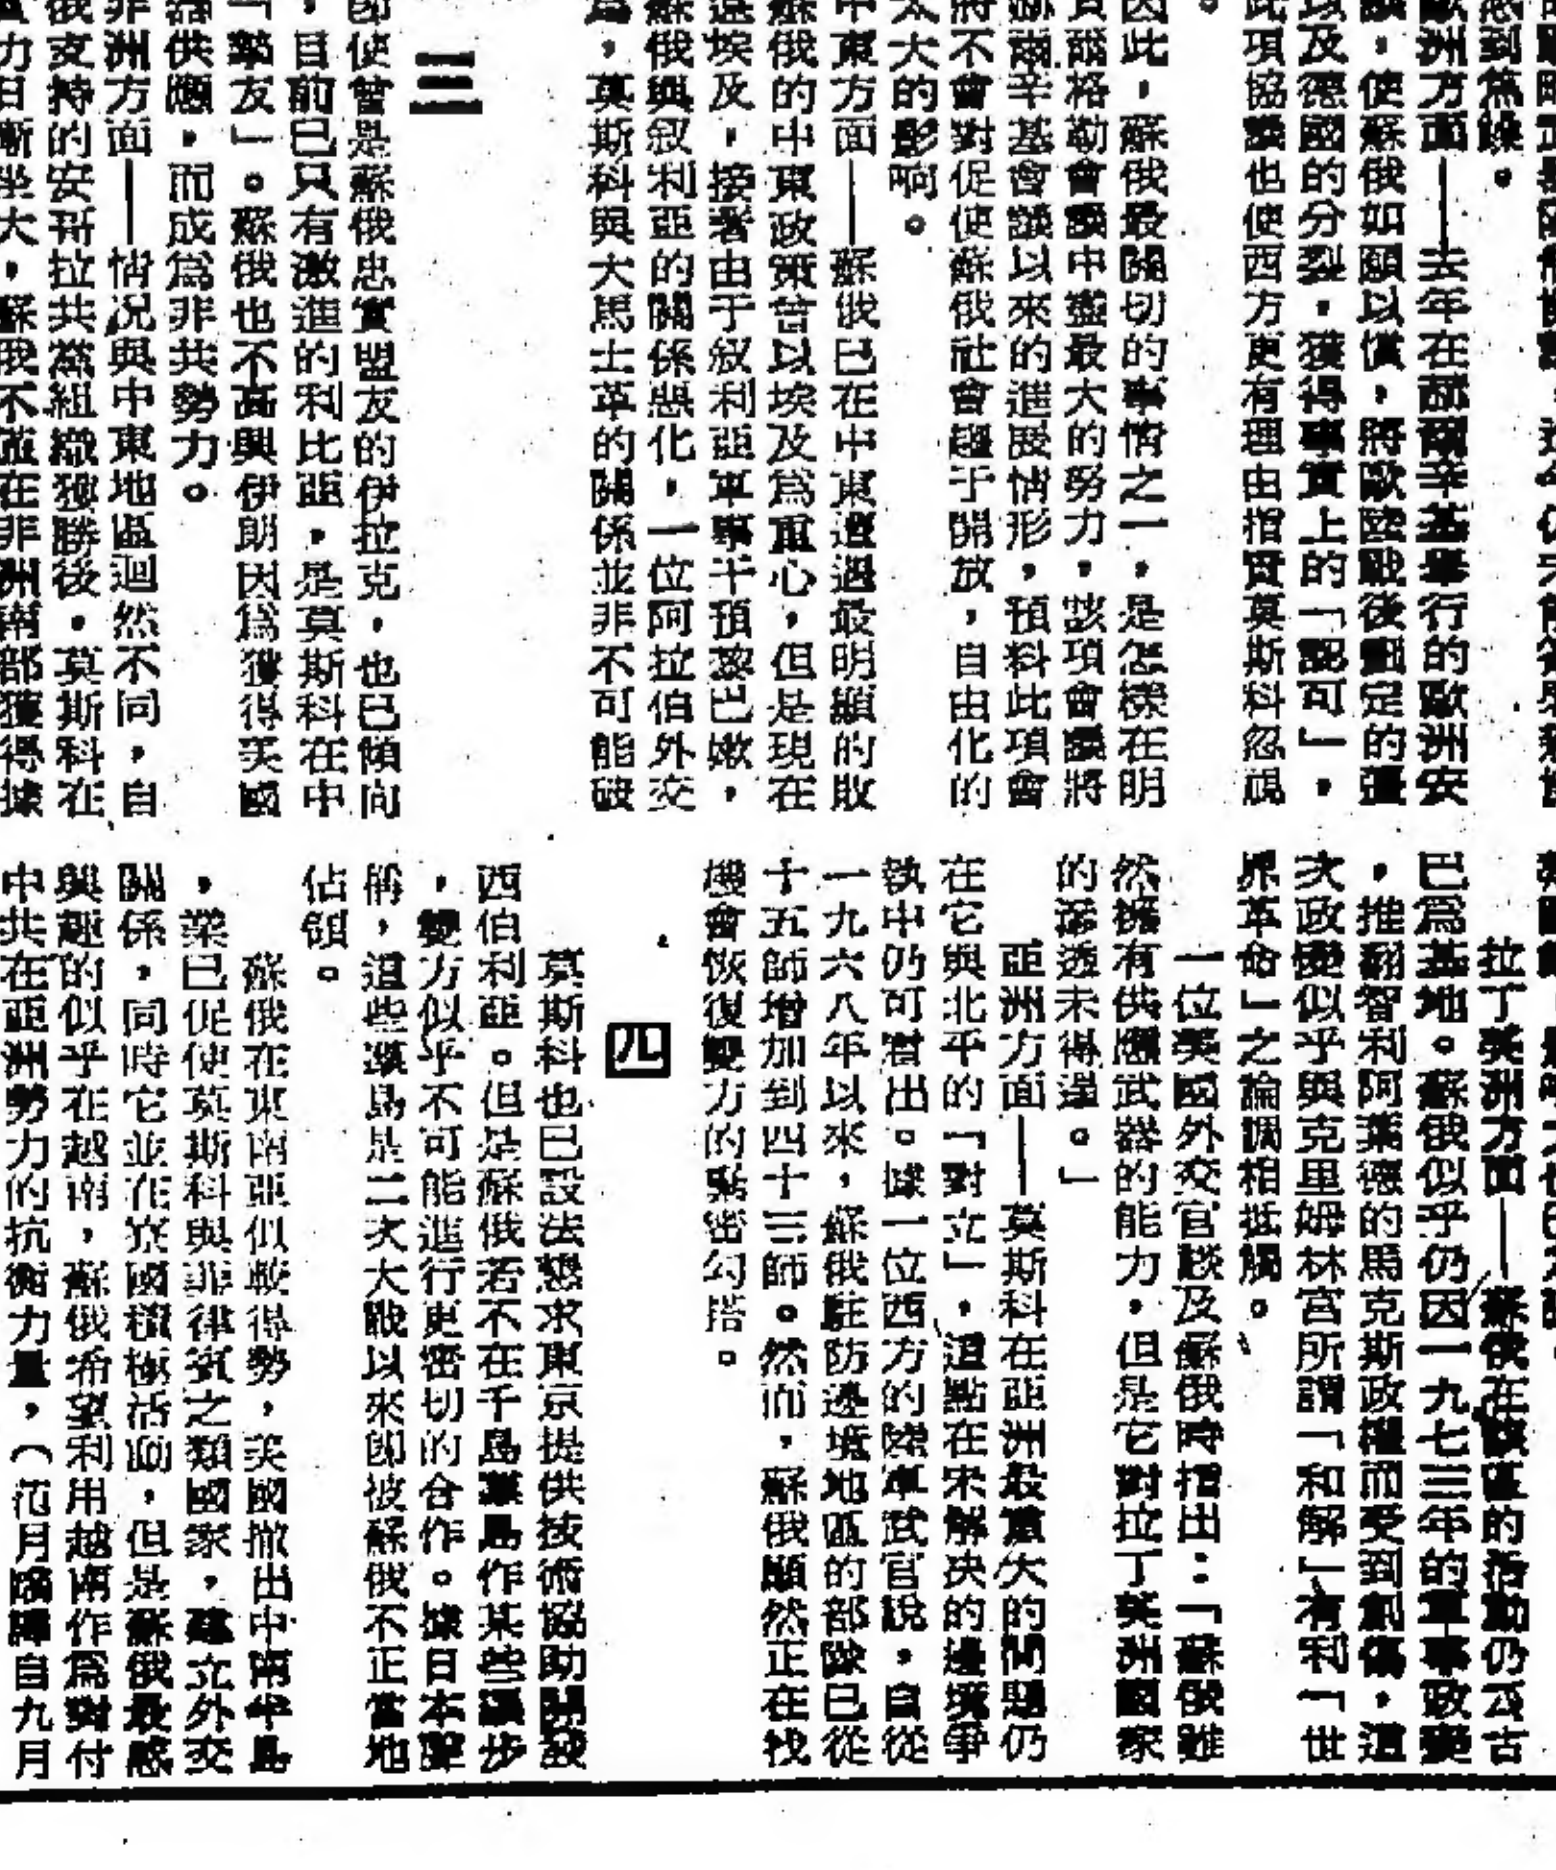 歐洲方面——去年在赫爾辛基舉行的歐洲安
議，使蘇俄如願以償，將歐陸戰後劃定的疆
以及德國的分裂，獲得事實上的「認可」，
此項協議也使西方更有理由指責莫斯科忽視
因此，蘇俄最關切的事情之一，是怎樣在明
貝爾格勒會議中盡最大的努力，該項會議將
赫爾辛基會議以來的進展情形，預料此項會
將不會對促使蘇俄社會趨于開放，自由化的
太大的影响。
中東方面——蘇俄已在中東遭遇最明顯的敗
蘇俄的中東政策曾以埃及爲重心，但是現在
埃及，接著由于叙利亞軍事干預黎巴嫩，
蘇俄與叙利亞的關係惡化，一位阿拉伯外交
爲，莫斯科與大馬士革的關係並非不可能破
三
即使曾是蘇俄忠實盟友的伊拉克，也已傾向
，目前已只有激進的利比亞，是莫斯科在中
「摯友」。蘇俄也不高興伊朗因爲獲得美國
器供應，而成爲非共勢力。
非洲方面——情况與中東地區迥然不同，自
俄支持的安哥拉共黨組織獲勝後，莫斯科在
力日漸坐大，蘇俄不僅在非洲南部獲得據
拉丁美洲方面——蘇俄在該區的活動仍以古
巴爲基地。蘇俄似乎仍因一九七三年的軍事政變
，推翻智利阿葉德的馬克斯政權而受到創傷，這
次政變似乎與克里姆林宮所謂「和解」有利「世
界革命」之論調相抵觸。
一位美國外交官談及蘇俄時指出：「蘇俄雖
然擁有供應武器的能力，但是它對拉丁美洲國家
的滲透未得逞。」
亞洲方面——莫斯科在亞洲最重大的問題仍
在它與北平的「對立」，這點在未解决的邊境爭
執中仍可看出。據一位西方的陸軍武官說，自從
一九六八年以來，蘇俄駐防邊境地區的部隊已從
十五師增加到四十三師。然而，蘇俄顯然正在找
機會恢復雙方的緊密勾搭。
四
莫斯科也已設法懇求東京提供技術協助開發
西伯利亞。但是蘇俄若不在千島羣島作某些讓步
，雙方似乎不可能進行更密切的合作。據日本聲
稱，這些羣島是二次大戰以來卽被蘇俄不正當地
佔領。
蘇俄在東南亞似較得勢，美國撤出中南半島
，業已促使莫斯科與菲律賓之類國家，建立外交
關係，同時它並在寮國積極活動，但是蘇俄最感
興趣的似乎在越南，蘇俄希望利用越南作爲對付
中共在亞洲勢力的抗衡力量，（范月
自九月